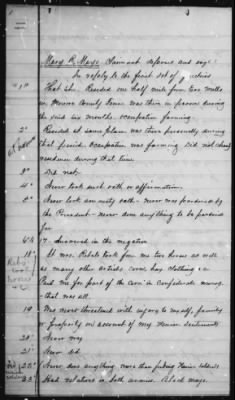 Mary R. Mays Claimant deposes and says
In reply to the first set of
1st That she. Resided one half mile from two mills
in Monroe County Tenn. Was there in person during
the said six months. occupation farming.
2d Resided at same place. Was there personally during
that period. Occupation was farming Did not change
residence during that time
3d Did not
4th Never took such oath or affirmation.
5th Never took amnesty oath - never was pardoned by
the President - never done anything to be pardoned
for
6th to 17 Answered in the negative
18th It was Rebels took from me two horses as well
as many other articles corn, hay clothing &c
Paid me for part of the corn in Confederate money.
that was all.
19 Was never threatened with injury to myself, family
or property on account of my Union sentiments
20 Never was
21 Never did
22d Never done anything more than feeding Union soldiers
23d Had relations in both armies.